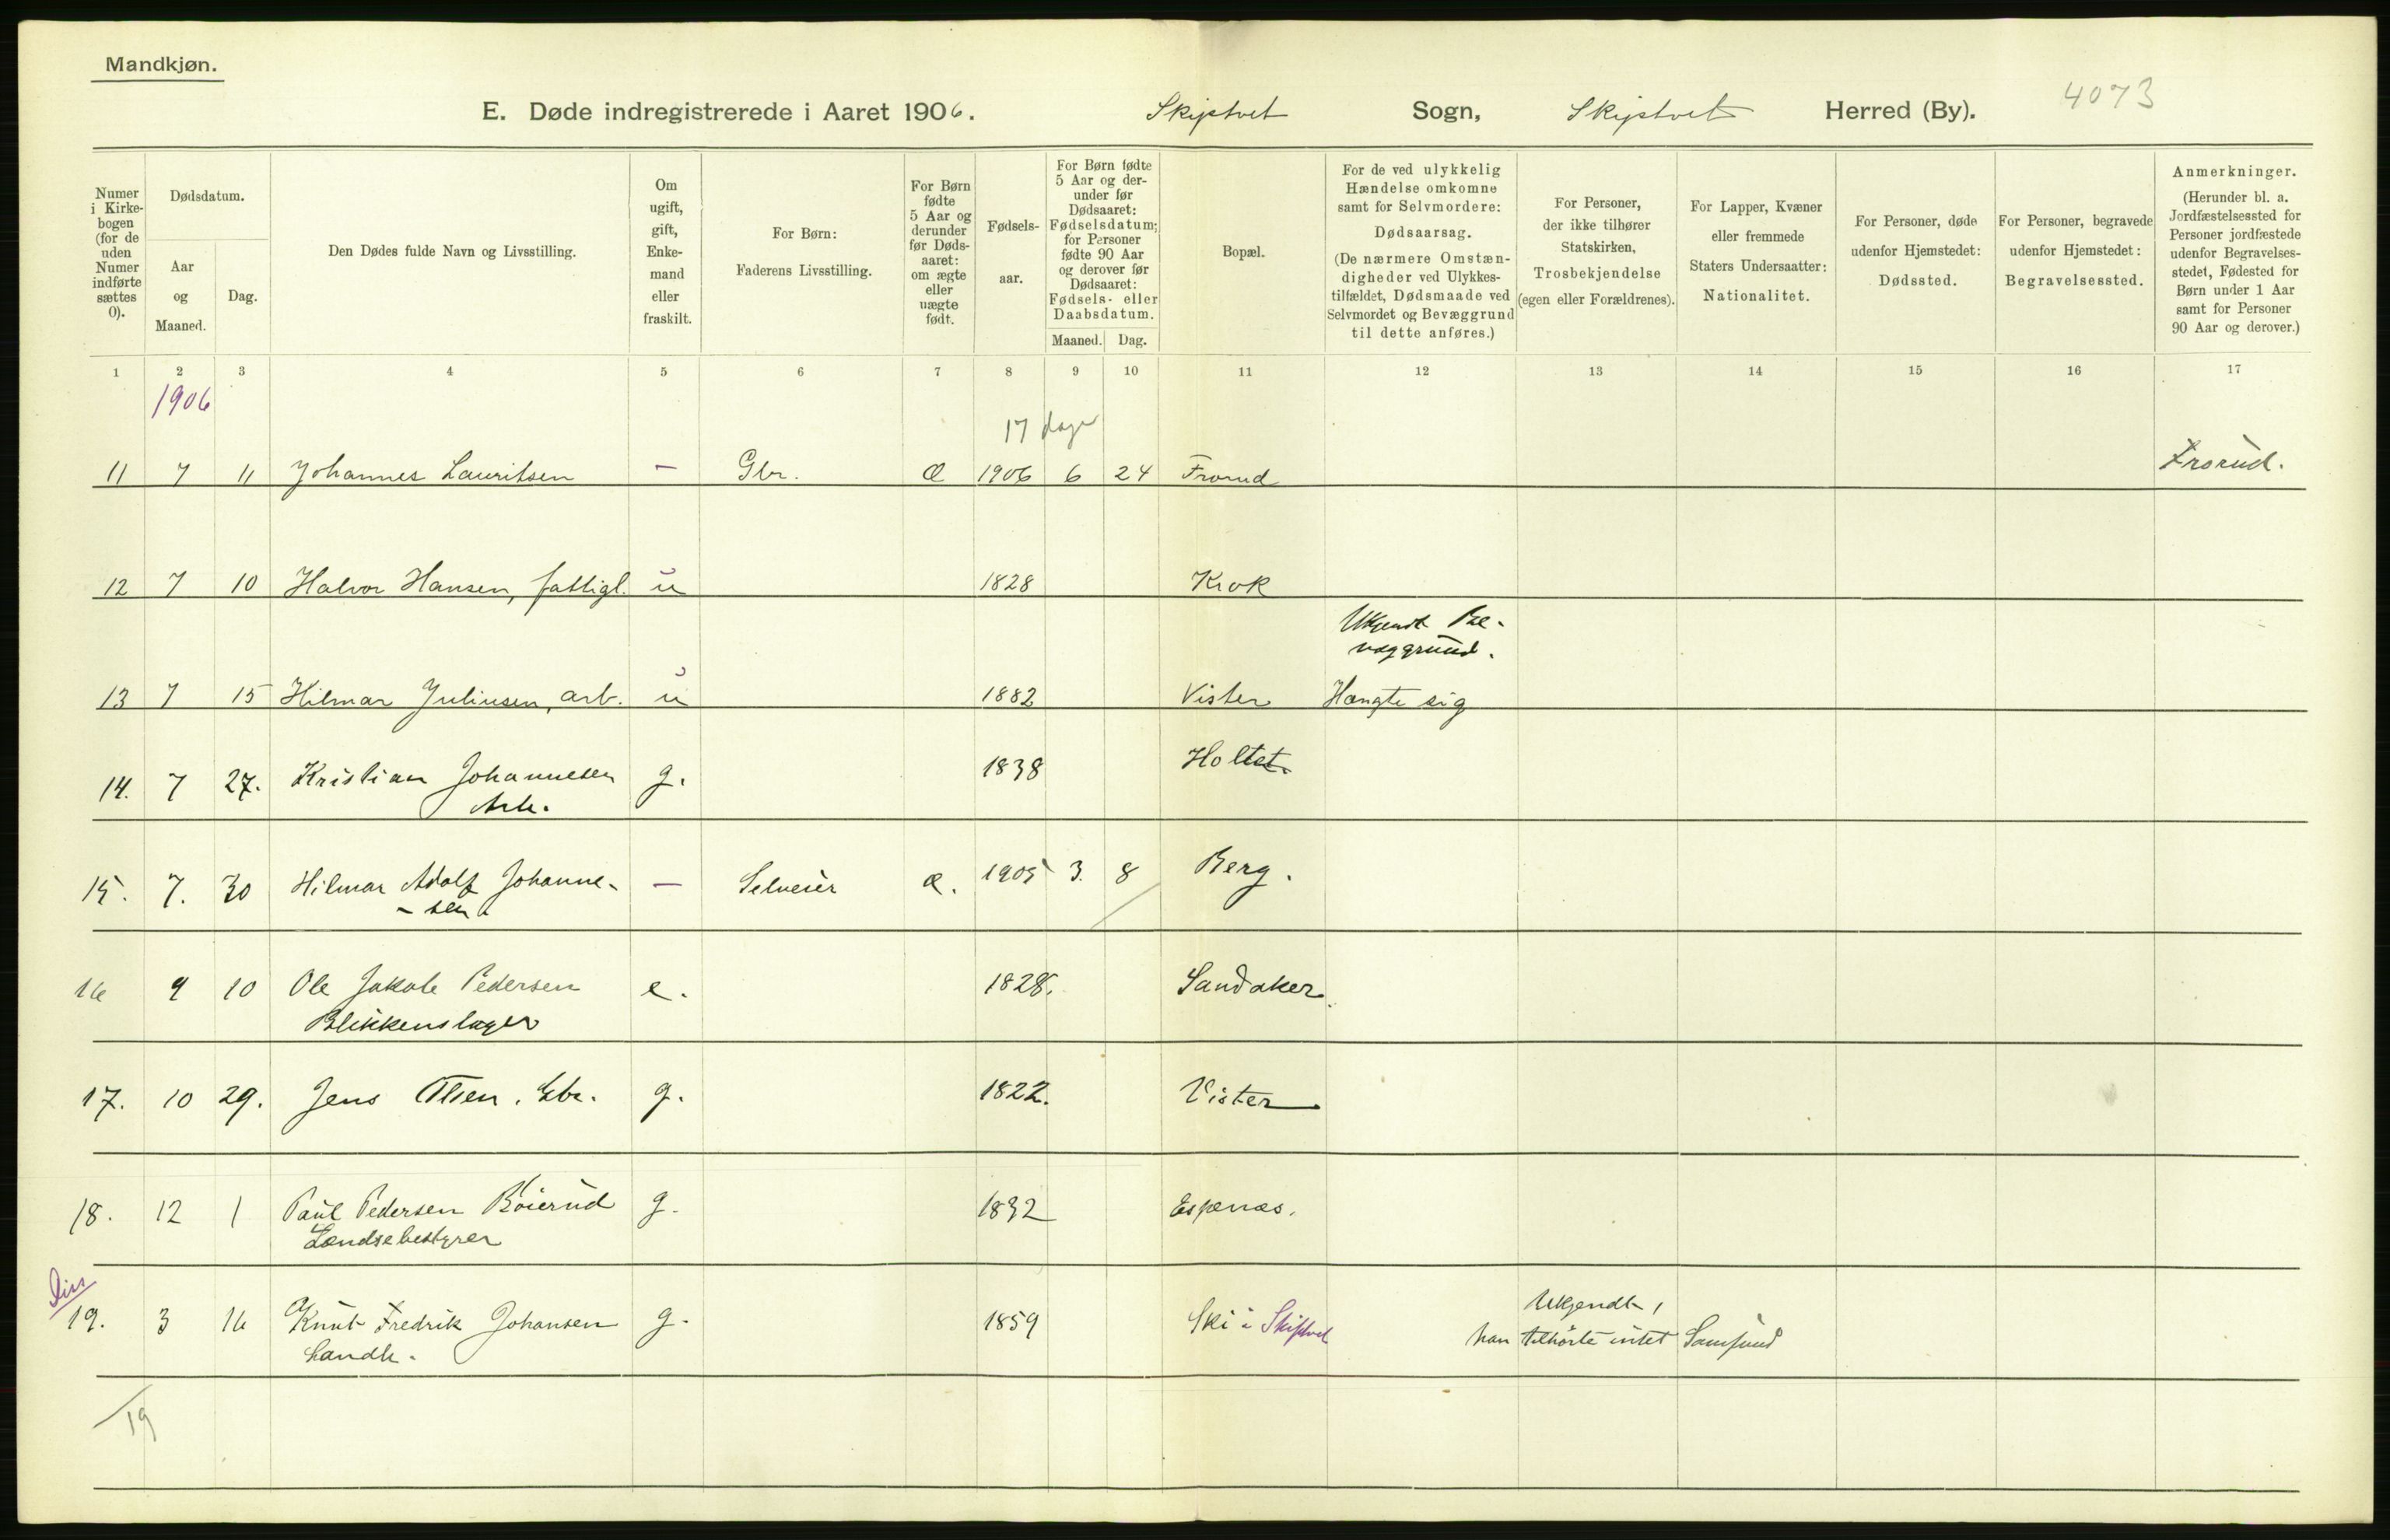 Mandkjøn.
E. Døde indregistrerede i Aaret 1906. Skiptvet Sogn, Skiptvet Herred (By). 4073
Numer i Kirke-bogen (for de uden Numer indførte sættes 0).
Dødsdatum.
Aar og Maaned.
Dag.
Den Dødes fulde Navn og Livsstilling.
Om ugift, gift, Enke-mand eller fraskilt.
For Børn: Faderens Livsstilling.
For Børn fødte 5 Aar og derunder før Døds-aaret: om ægte eller uægte født.
Fødsels-aar.
For Børn fødte 5 Aar og der-under før Dødsaaret: Fødselsdatum; for Personer fødte 90 Aar og derover før Dødsaaret: Fødsels- eller Daabsdatum.
Maaned. Dag.
Bopæl.
For de ved ulykkelig Hændelse omkomne samt for Selvmordere: Dødsaarsag. (De nærmere Omstæn-digheder ved Ulykkes-tilfældet, Dødsmaade ved Selvmordet og Bevæggrund til dette anføres.)
For Personer, der ikke tilhører Statskirken, Trosbekjendelse (egen eller Forældrenes).
For Lapper, Kvæner eller fremmede Staters Undersaatter: Nationalitet.
For Personer, døde udenfor Hjemstedet: Dødssted.
For Personer, begravede udenfor Hjemstedet: Begravelsessted.
Anmerkninger. (Herunder bl. a. Jordfæstelsessted for Personer jordfæstede udenfor Begravelses-stedet, Fødested for Børn under 1 Aar samt for Personer 90 Aar og derover.)
1 2 3 4 5 6 7 8 9 10 11 12 13 14 15 16 17
1906
17 dage
11 7 11 Johannes Lauritsen — Gbr. Æ 1906 6 24 Frorud Frorud.
12 7 10 Halvor Hansen, fattigl. u 1828 Krok
Ukjendt Be-
væggrund.
13 7 15 Hilmar Juliusen, arb. u 1882 Vister Hængte sig
14. 7 27. Kristian Johannesen g. 1838 Holtet.
Arb.
15. 7. 30 Hilmar Adolf Johanne- — Selveier æ. 1905 3. 8 Berg.
- sen
16 9 10 Ole Jakob Pedersen e. 1828. Sandaker.
Blikkenslager
17. 10 29. Jens Olsen. Gbr. g. 1822. Vister
18. 12 1 Paul Pedersen Bøierud g. 1832 Espenæs.
Lændsebestyrer
Diss
19. 3 16 Knut Fredrik Johansen g. 1859 Ski i Skiptvet Ukjendt,
Landh. han tilhørte intet Samfund
19